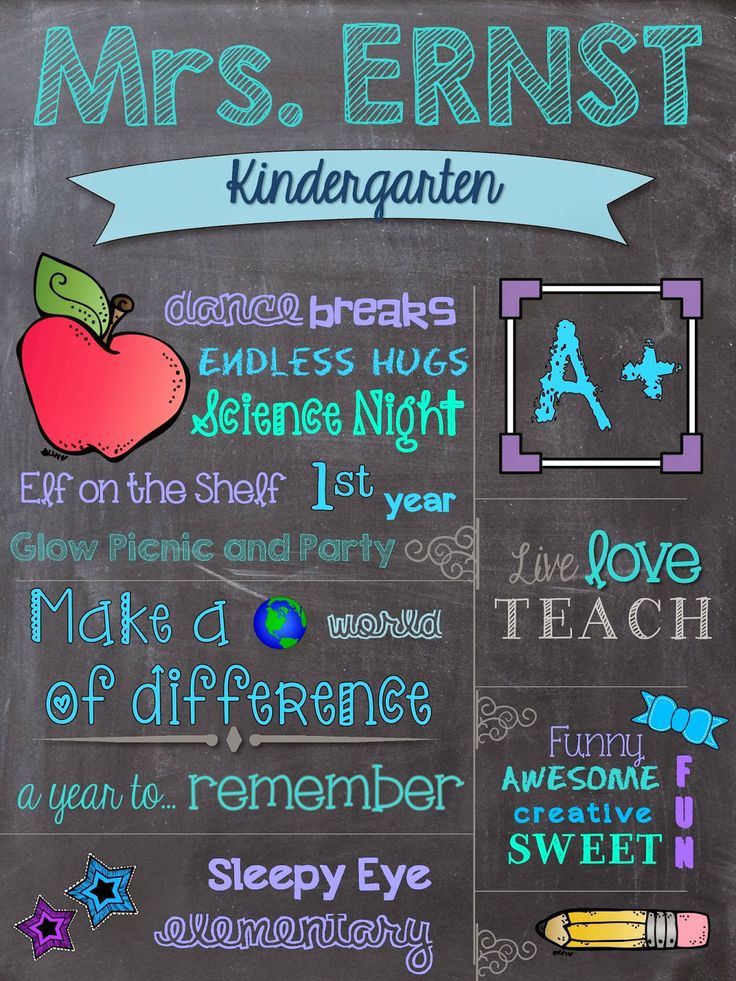 Mrs. ERNST
Kindergarten
dance breaks
ENDLESS HUGS
Science Night
Elf on the Shelf 1st year
Glow Picnic and Party
Make a world
of difference
a year to... remember
Sleepy Eye
elementary
A+
Live love
TEACH
Funny
AWESOME
creative
SWEET
FUN